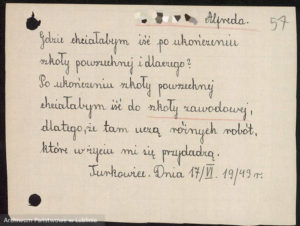 Alfreda. 57
Gdzie chciałabym iść po ukończeniu
szkoły powszechnej i dlaczego?
Po ukończeniu szkoły powszechnej
chciałabym iść do szkoły zawodowej,
dlatego, że tam uczą różnych robót,
które w życiu mi się przydadzą.
Turkowice. Dnia 17/VI. 1949 r.
Archiwum Państwowe w Lublinie